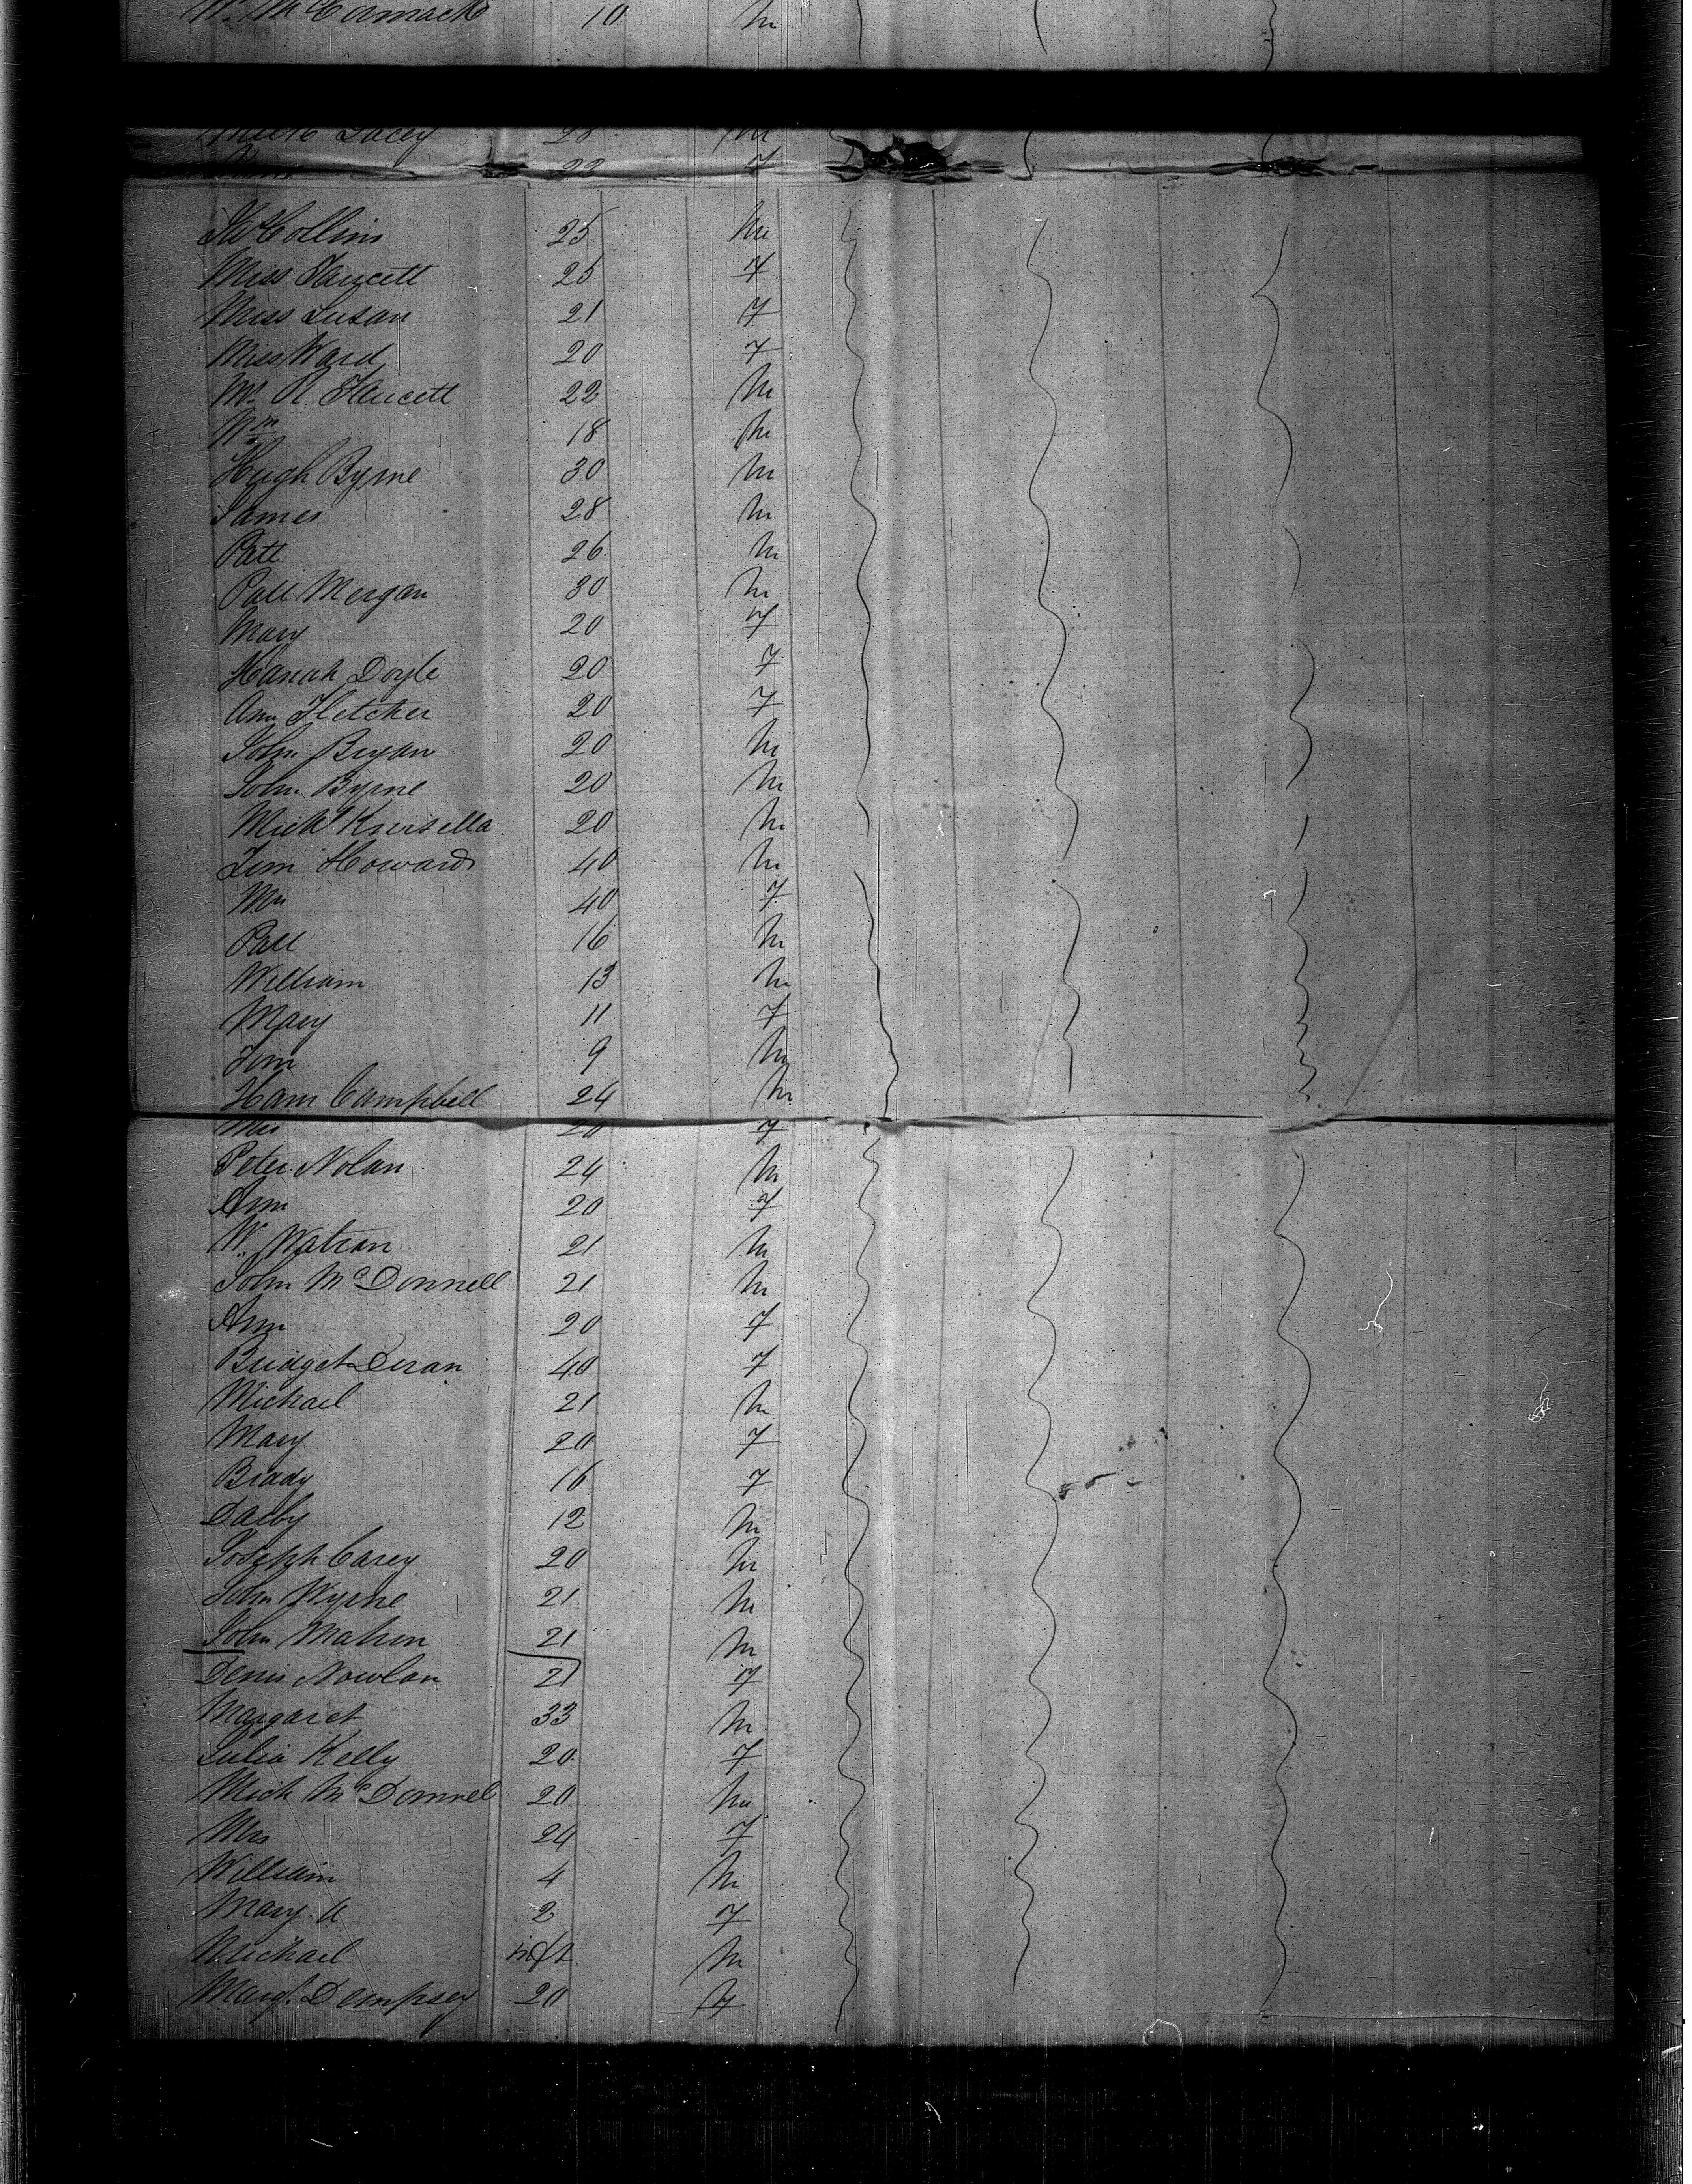 McCormack 10 m
Lacey 28 m
22 F
Collins 25 m
Miss Faucett 25 F
Miss Susan 21 F
Miss Ward 20 F
Mr. R Faucett 22 m
Wm 18 m
Hugh Byrne 30 m
James 28 m
Patt 26 m
Patt Morgan 30 m
Mary 20 F
Hanah Doyle 20 F
Ann Fletcher 20 F
John Bryan 20 m
John Byrne 20 m
Mich 20 m
Jim Howard 40 m
Mrs 40 F
Patt 16 m
William 13 m
Mary 11 F
Jim 9 m
Ham Campbell 24 m
Mrs 20 F
Peter Nolan 24 m
Ann 20 F
W. Watson 21 m
John McDonnell 21 m
Ann 20 F
Bridget Doran 40 F
Michael 21 m
Mary 20 F
Biady 16 F
Darby 12 m
Joseph Carey 20 m
John 21 m
John 21 m
Denis Nowlan 21 F
Margaret 33 m
Julia Kelly 20 F
Mich McDonnel 20 m
Mrs 24 F
William 4 m
Mary A 2 F
Michael inft m
Margt Dempsey 20 F